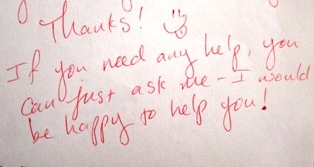 Thanks!
If you need any help, you
can just ask me - I would
be happy to help you!